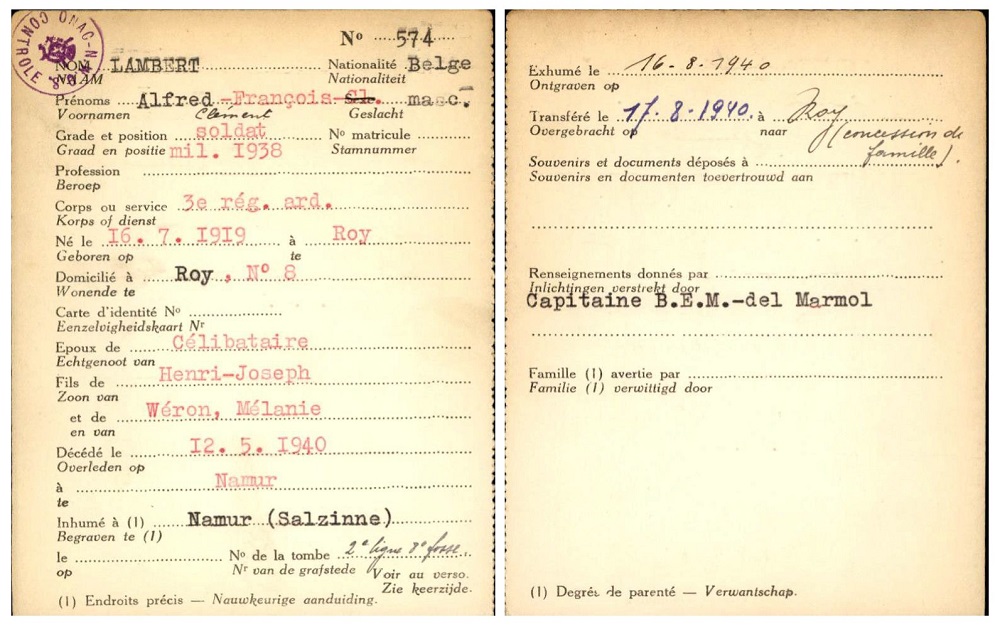 CONTROLE
ONAC-N
Nº 574
NOM LAMBERT Nationalité Belge
NAAM Nationaliteit
Prénoms Alfred -François-Cl. masc.
Voornamen Clément Geslacht
Grade et position soldat Nº matricule
Graad en positie mil. 1938 Stamnummer
Profession
Beroep
Corps ou service 3e rég. ard.
Korps of dienst
Né le 16. 7. 1919 à Roy
Geboren op te
Domicilié à Roy , Nº 8
Wonende te
Carte d'identité Nº
Eenzelvigheidskaart Nr
Epoux de Célibataire
Echtgenoot van
Fils de Henri-Joseph
Zoon van
et de Wéron, Mélanie
en van
Décédé le 12. 5. 1940
Overleden op
à Namur
te
Inhumé à (1) Namur (Salzinne)
Begraven te (1)
le Nº de la tombe 2e ligne 8e fosse
op Nr van de grafstede Voir au verso.
Zie keerzijde.
(1) Endroits précis — Nauwkeurige aanduiding.
Exhumé le 16-8-1940
Ontgraven op
Transféré le 17-8-1940. à Roy
Overgebracht op naar (concession de
famille).
Souvenirs et documents déposés à
Souvenirs en documenten toevertrouwd aan
Renseignements donnés par
Inlichtingen verstrekt door
Capitaine B.E.M.-del Marmol
Famille (1) avertie par
Familie (1) verwittigd door
(1) Degré de parenté — Verwantschap.